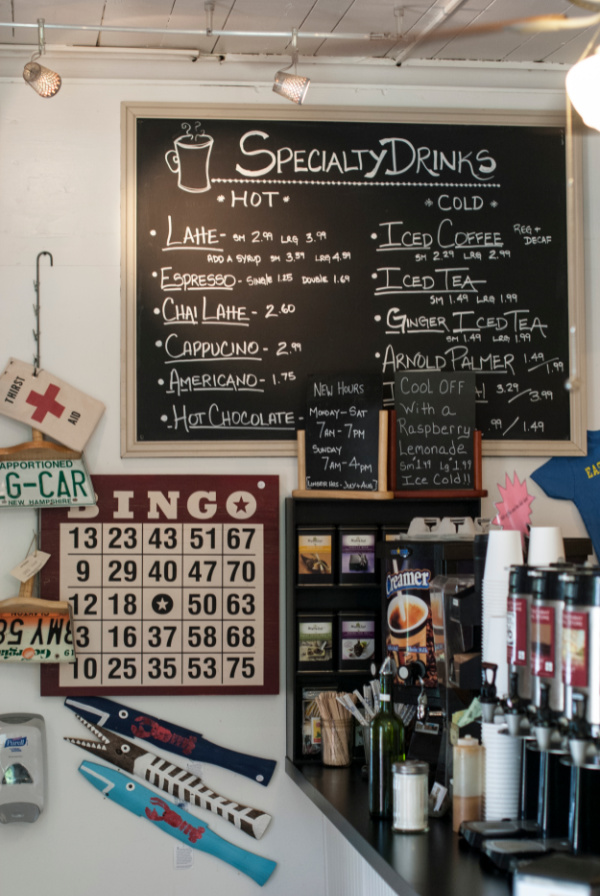 SPECIALTY DRINKS
* HOT *
* COLD *
• LATTE - SM 2.99 LRG 3.99
ADD A SYRUP SM 3.59 LRG 4.59
• ESPRESSO - SINGLE 1.25 DOUBLE 1.69
• CHAI LATTE - 2.60
• CAPPUCINO - 2.99
• AMERICANO - 1.75
• HOT CHOCOLATE -
• ICED COFFEE REG + DECAF
SM 2.29 LRG 2.99
• ICED TEA
SM 1.49 LRG 1.99
• GINGER ICED TEA
SM 1.49 LRG 1.99
• ARNOLD PALMER 1.49/1.99
3.29/3.99
.99/1.49
NEW HOURS
MONDAY - SAT
7AM - 7PM
SUNDAY
7AM - 4PM
COOL OFF
With a
Raspberry
Lemonade
Ice Cold!!
THIRST
AID
APPORTIONED
G-CAR
NEW HAMPSHIRE
BINGO
13 23 43 51 67
9 29 40 47 70
12 18 50 63
3 16 37 58 68
10 25 35 53 75
RMY 58
Georgia
Creamer
Purell
EAS